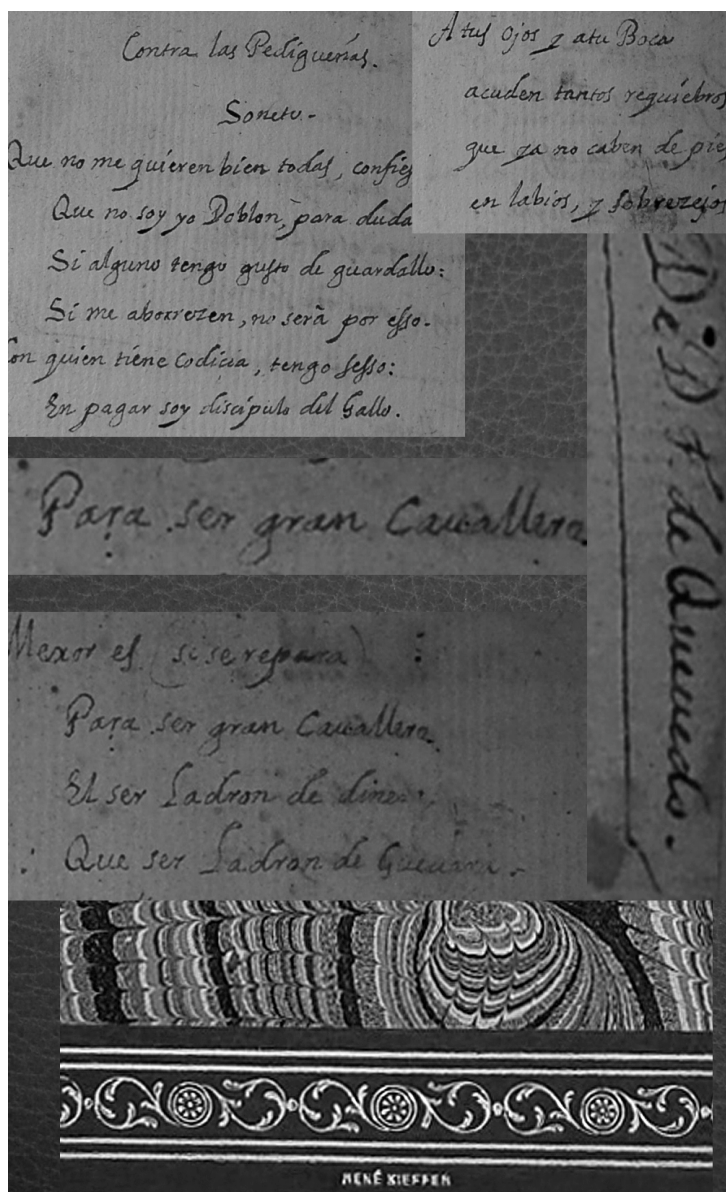 Contra las Pediguenías.
Soneto.
Que no me quieren bien todas, confies
Que no soy yo Doblon, para duda
Si alguno tengo gusto de guardallo:
Si me aborrezen, no serâ por esso.
Con quien tiene codicia, tengo sesso:
En pagar soy discípulo del Gallo.
A tus ojos y a tu Boca
acuden tantos requiebros
que ya no caben de pies
en labios, y sobrezejos
De D F. de Quevedo.
Para ser gran Cauallero
Mexor es (si se repara)
Para ser gran Cauallero
El ser Ladron de dinero
Que ser Ladron de Gueuara.
RENÉ KIEFFER